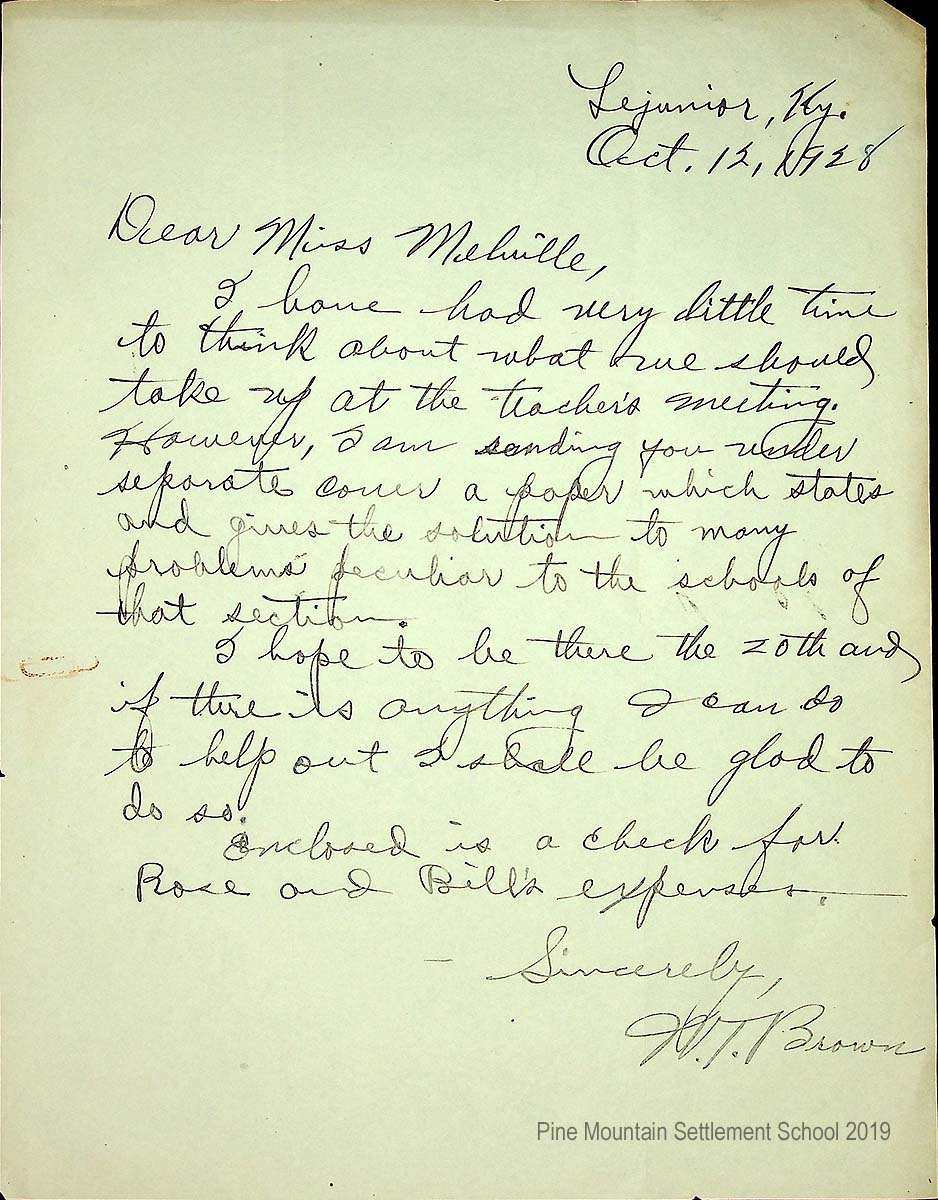 Lejunior, Ky.
Oct. 12, 1928
Dear Miss Melville,
I have had very little time
to think about what we should
take up at the teacher's meeting.
However, I am sending you under
separate cover a paper which states
and gives the solution to many
problems peculiar to the schools of
that section.
I hope to be there the 20th and
if there is anything I can do
to help out I shall be glad to
do so.
Enclosed is a check for
Rose and Bill's expenses.
Sincerely,
H.T. Brown
Pine Mountain Settlement School 2019